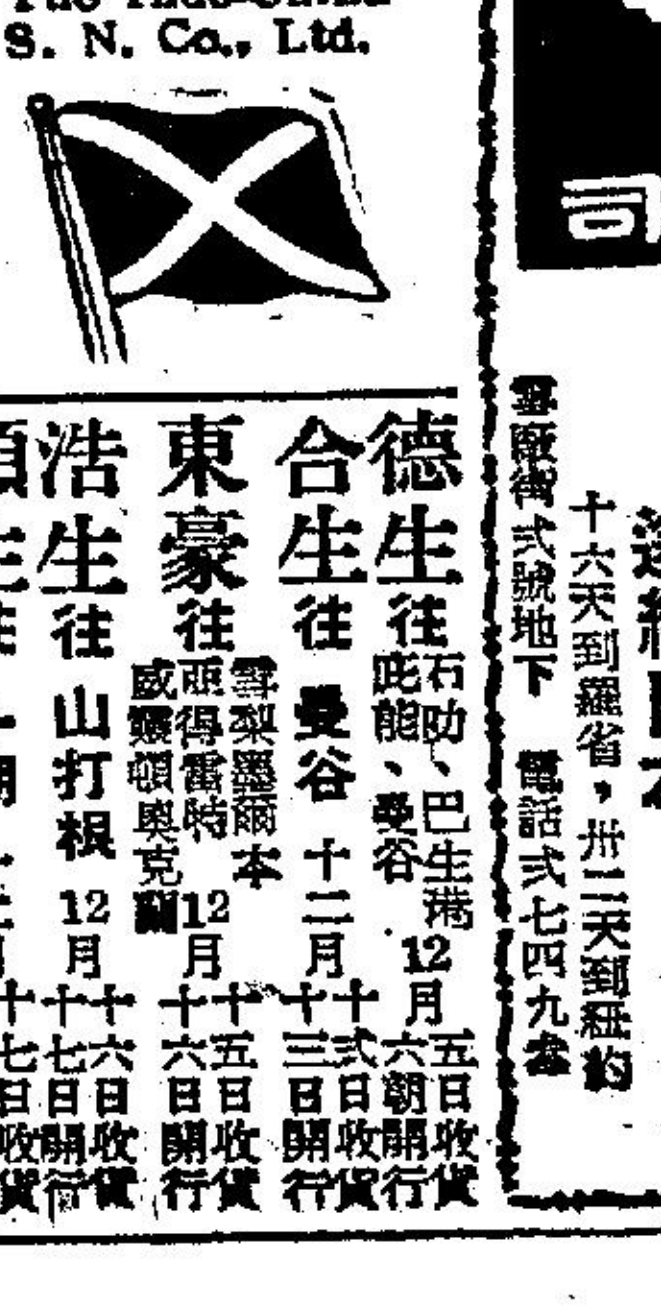 S. N. Co., Ltd.
司
十六天到羅省，卅二天到紐約
雪廠街弍號地下 電話弍七四九
德生往
石叻、巴生港
庇能、曼谷
12月
五日收貨
六朝開行
合生往曼谷十二月
十弍日收貨
十三日開行
東豪往
雪梨墨爾本
亞得雷時
威頓奧克蘭
12月
十五日收貨
十六日開行
浩生往山打根12月
十六日收貨
十七日開行